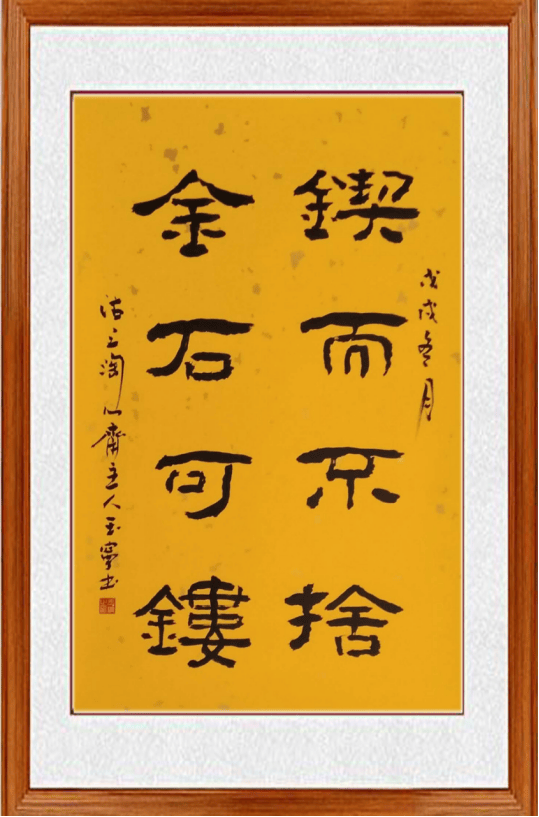 戊戌冬月
鍥而不捨
金石可鏤
沽上淘心齋主人玉寧書